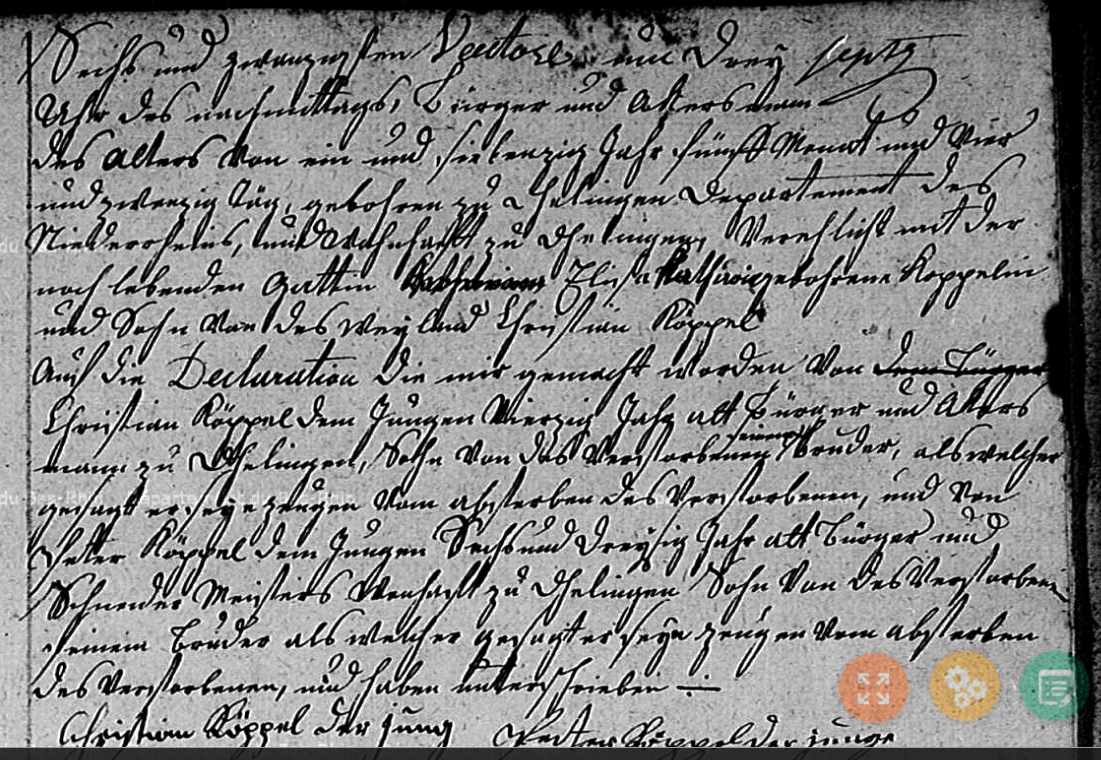 Sechs und zwanzigsten Ventose, um Drey
Uhr des nachmittags, Bürger und Ackersmann
des alters von ein und siebenzig Jahr fünff Monat und Vier
und zwanzig Tag, gebohren zu Dhelingen Departement des
Niederrheins, und Wohnhafft zu Dhelingen, Verehlicht mit der
noch lebenden Gattin Elisa Katharin gebohrene Köppelin
und Sohn von des weyland Christian Köppel
Auch die Declaration die mir gemacht worden von dem Bürger
Christian Köppel dem Jungen Vierzig Jahr alt Bürger und Ackers
mann zu Dhelingen, Sohn von das Verstorbenen seinem Bruder, als welcher
gesagt er seye zeugen vom absterben des Verstorbenen, und von
Petter Köppel dem Jungen Sechs und Dreysig Jahr alt Bürger und
Schneider Meisters Wonhafft zu Dhelingen Sohn von des Verstorben
seinem Bruder als welcher gesagt er seye zeugen vom absterben
des Verstorbenen, und haben unterschrieben
Christian Köppel der jung Petter Köppel der junge